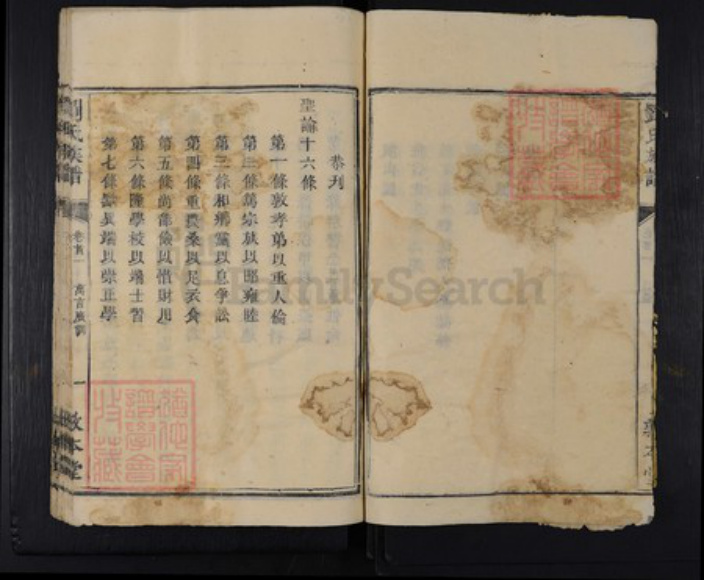 恭刊
聖諭十六條
第一條敦孝弟以重人倫
第二條篤宗族以昭雍睦
第三條和鄉黨以息爭訟
第四條重農桑以足衣食
第五條尚節儉以惜財用
第六條隆學校以端士習
第七條黜異端以崇正學
劉氏族譜
卷首一
萬言廣訓
一
敦本堂
譜學會
收藏
FamilySearch